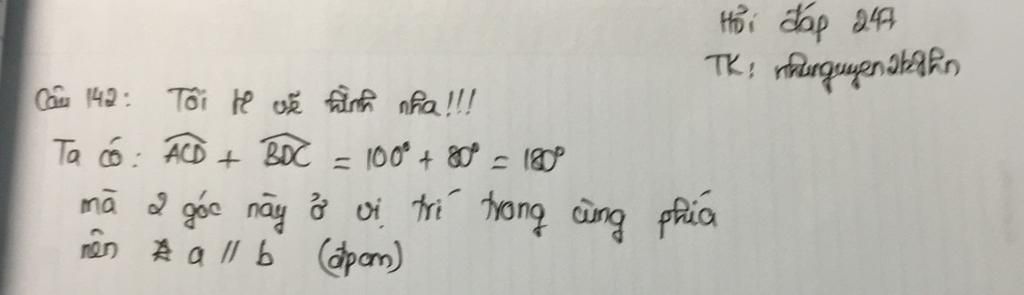 Hỏi đáp 247
TK: nhunguyen2k8hn
Câu 142: Tôi k vẽ hình nha!!!
Ta có: ACD + BDC = 100° + 80° = 180°
mà 2 góc này ở vị trí trong cùng phía
nên a // b (đpcm)